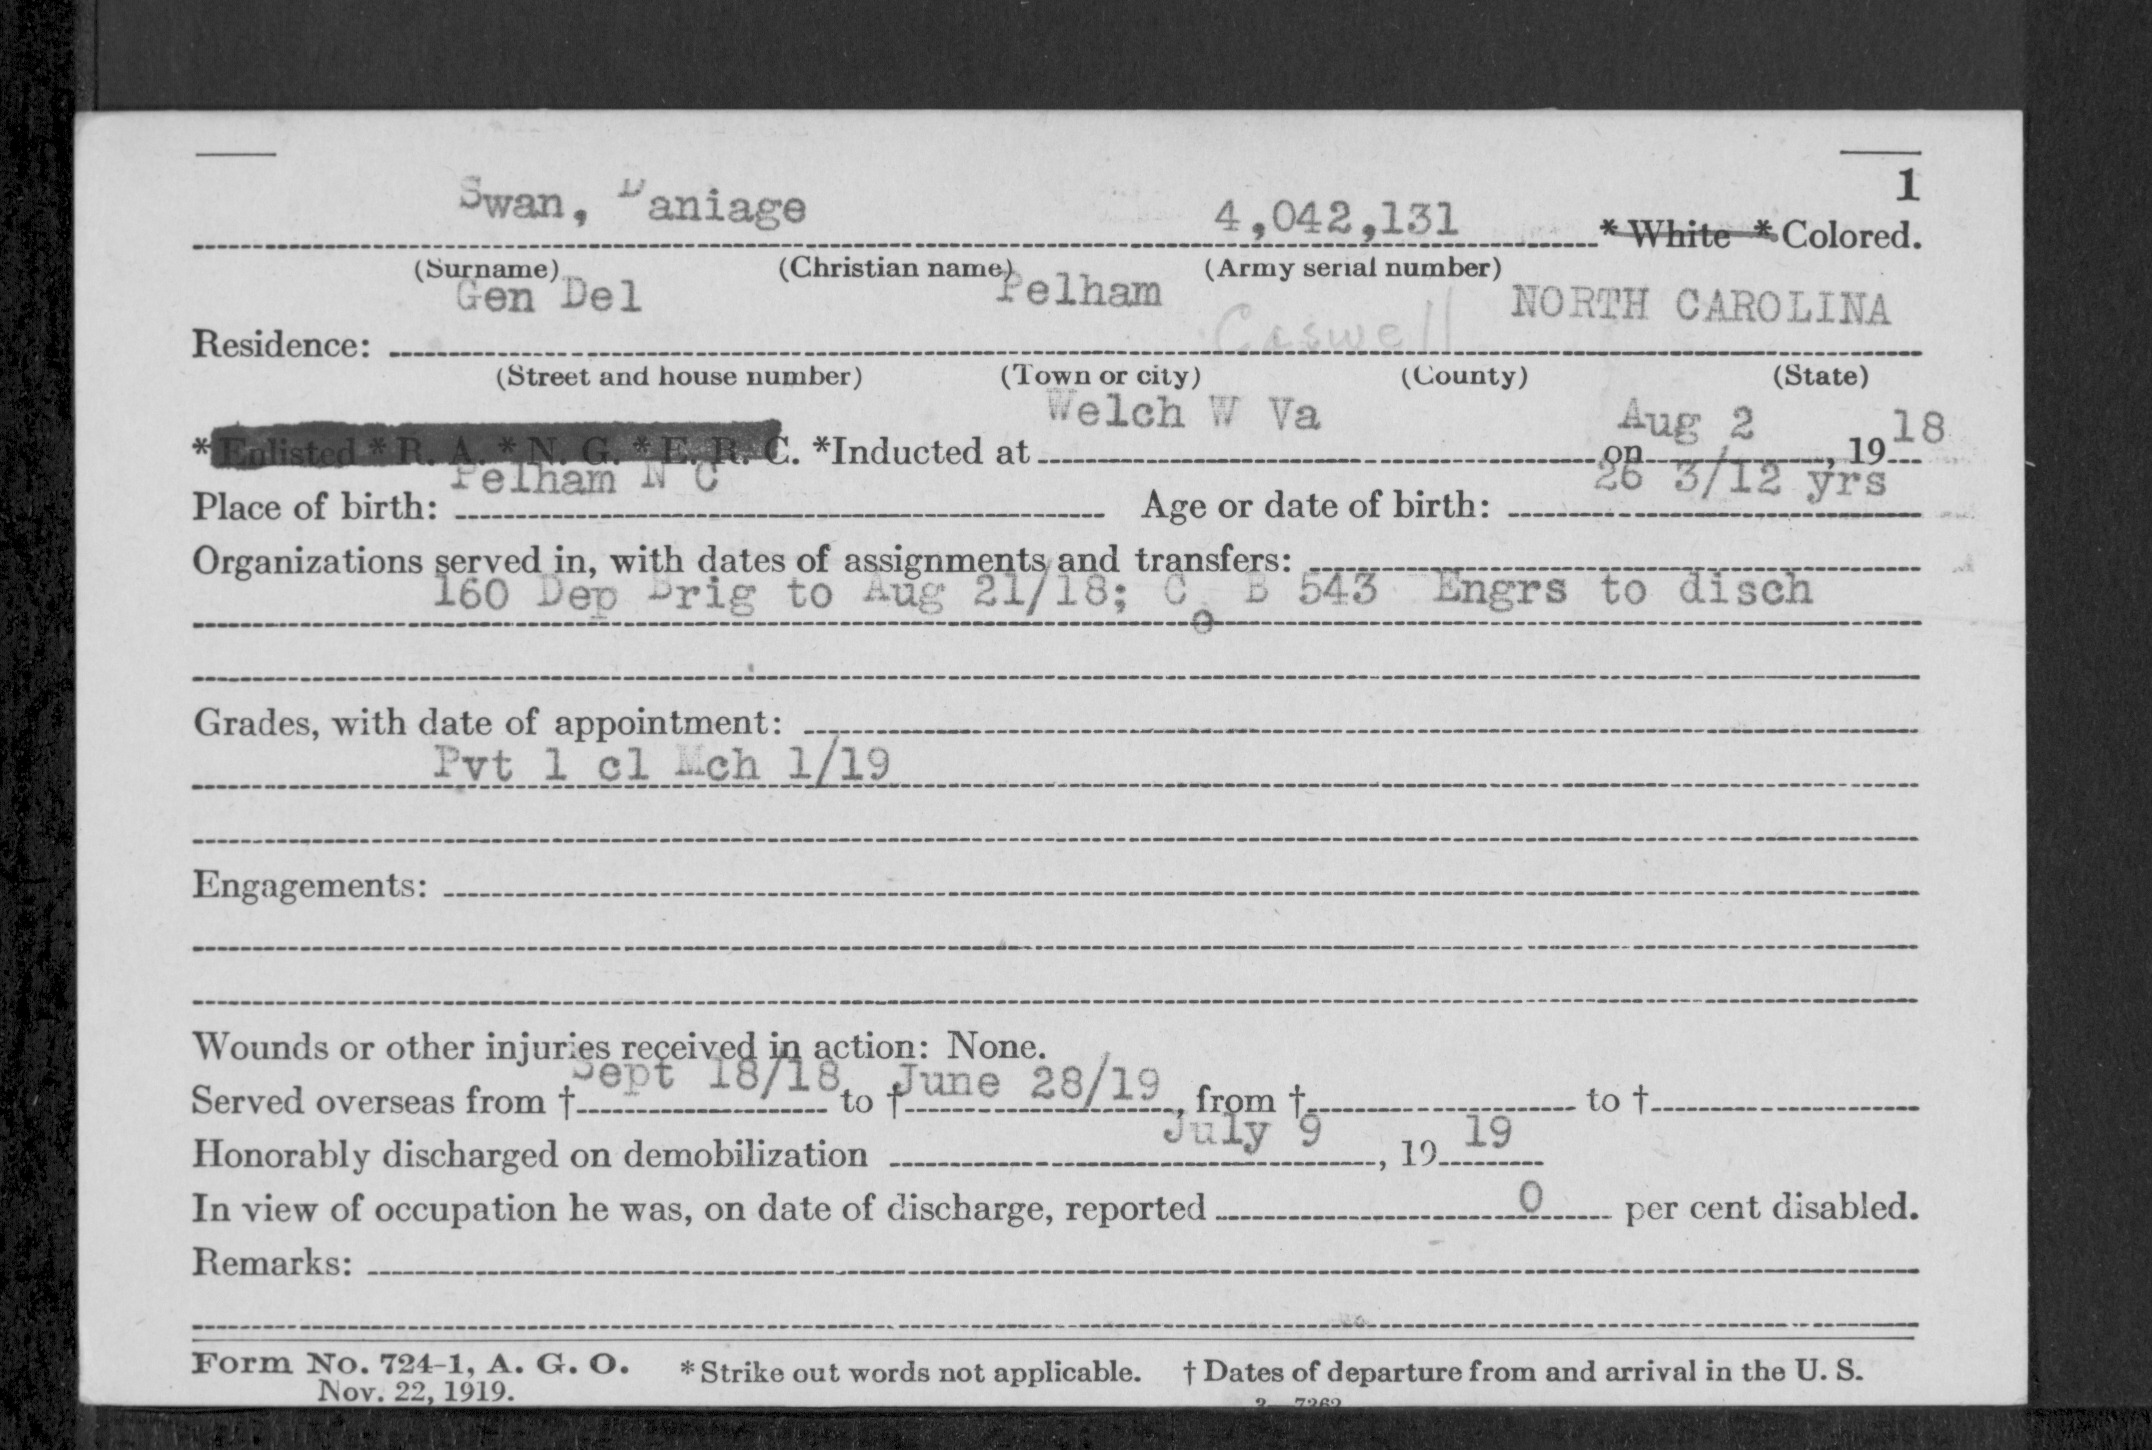 1
Swan, Daniage 4,042,131 * White * Colored.
(Surname) (Christian name) (Army serial number)
Gen Del Pelham Caswell NORTH CAROLINA
Residence:
(Street and house number) (Town or city) (County) (State)
Welch W Va Aug 2 18
* Enlisted * R. A. * N. G. * E. R. C. *Inducted at on , 19
Pelham N C 26 3/12 yrs
Place of birth: Age or date of birth:
Organizations served in, with dates of assignments and transfers:
160 Dep Brig to Aug 21/18; Co B 543 Engrs to disch
Grades, with date of appointment:
Pvt 1 cl Mch 1/19
Engagements:
Wounds or other injuries received in action: None.
Sept 18/18 June 28/19
Served overseas from † to † , from † to †
July 9 19
Honorably discharged on demobilization , 19
In view of occupation he was, on date of discharge, reported 0 per cent disabled.
Remarks:
Form No. 724-1, A. G. O. * Strike out words not applicable. † Dates of departure from and arrival in the U. S.
Nov. 22, 1919.